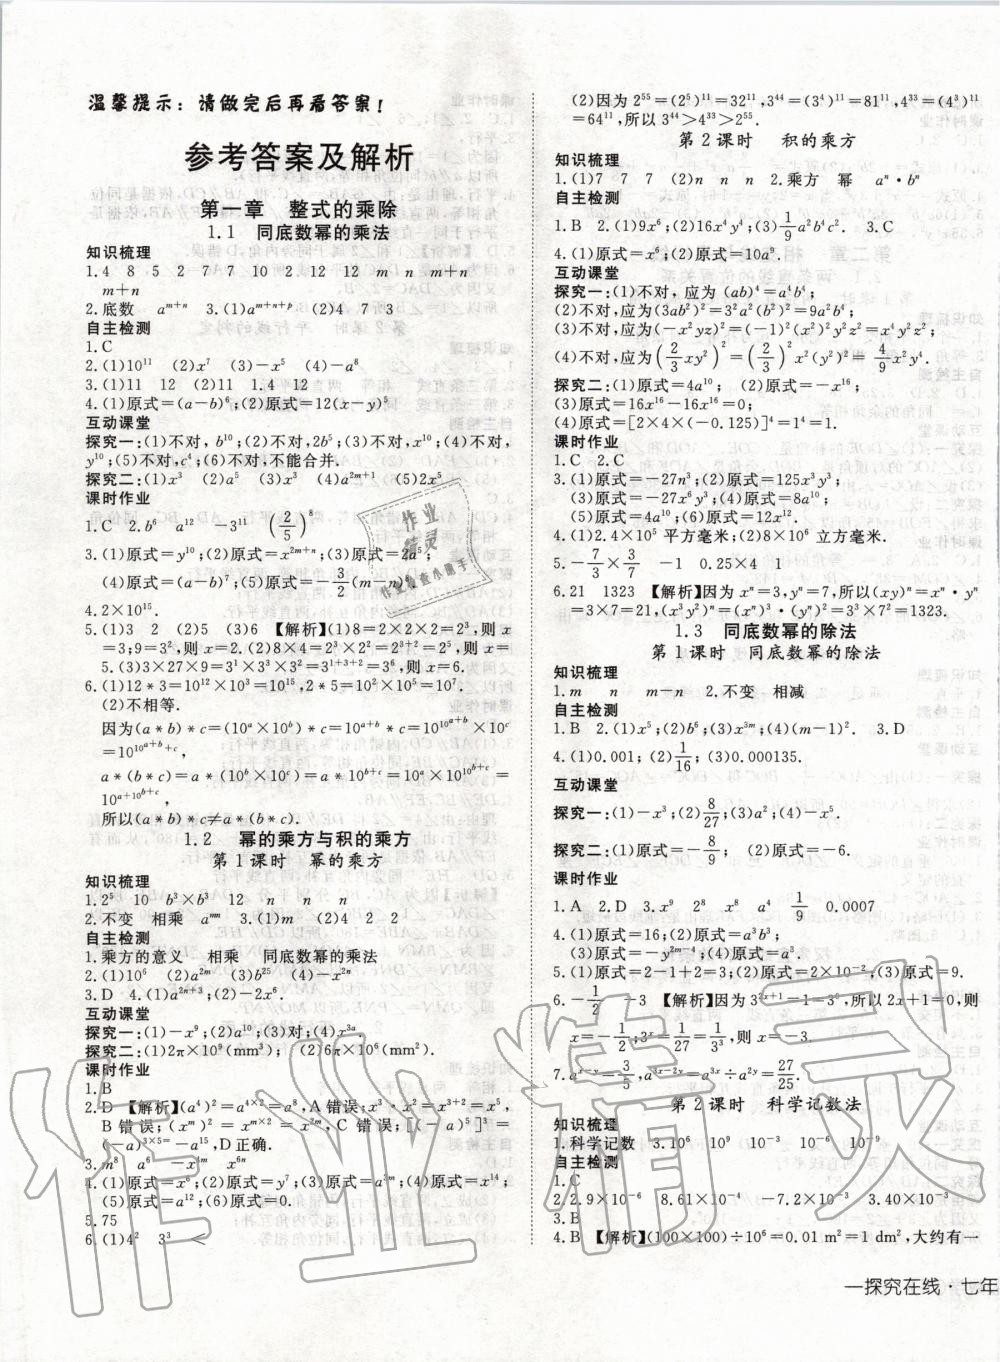 温馨提示：请做完后再看答案！
参考答案及解析
第一章　整式的乘除
1.1　同底数幂的乘法
知识梳理
1.4　8　5　2　7　7　10　2　12　12　m　n　m+n
m+n
2.底数　aᵐ⁺ⁿ　3.(1)aᵐ⁺ⁿ⁺ᵖ　(2)4　7　3
自主检测
1.C
2.(1)10¹¹　(2)x⁷　(3)-x⁵　(4)-a⁶
3.(1)11　12　(2)12　1.4　12
4.(1)原式=(a-b)⁶;(2)原式=12(x-y)⁵
互动课堂
探究一:(1)不对,b¹⁰;(2)不对,2b⁵;(3)不对,x¹⁰;(4)不对,
y¹⁰;(5)不对,c⁴;(6)不对,不能合并.
探究二:(1)x³　(2)a⁵　(3)x³　(4)a²ᵐ⁺¹　(5)2x⁵
课时作业
1.C　2.b⁶　a¹²　-3¹¹　(2/5)⁸
3.(1)原式=y¹⁰;(2)原式=x²ᵐ⁺ⁿ;(3)原式=2a⁵;
(4)原式=(a-b)⁷;(5)原式=-3/2(m-n)⁶.
4.2×10¹⁵.
5.(1)3　2　(2)5　(3)6　【解析】(1)8=2×2×2=2³,则x
=3;9=3²,则x=2.(2)8×4=2³×2²=2⁵=2ˣ,则x=
5.(3)3×27×9=3¹×3³×3²=3¹⁺³⁺²=3ˣ,则x=6.
6.(1)12*3=10¹²×10³=10¹⁵,2*5=10²×10⁵=10⁷.
(2)不相等.
因为(a*b)*c=(10ᵃ×10ᵇ)*c=10ᵃ⁺ᵇ*c=10^(10^(a+b))×10ᶜ
=10^(10^(a+b)+c),
a*(b*c)=a*(10ᵇ×10ᶜ)=a*10ᵇ⁺ᶜ=10ᵃ×10^(10^(b+c))=
10^(a+10^(b+c)),
所以(a*b)*c≠a*(b*c).
1.2　幂的乘方与积的乘方
第1课时　幂的乘方
知识梳理
1.2⁵　10　b³×b³　12　n　n　n　n
2.不变　相乘　aᵐⁿ　3.(1)m　(2)4　2　2
自主检测
1.乘方的意义　相乘　同底数幂的乘法
2.(1)10⁶　(2)a²ᵐ　(3)b²⁵　(4)-x²ⁿ
3.D　4.(1)a²ⁿ⁺⁵;(2)-2x⁶.
互动课堂
探究一:(1)-x⁹;(2)a¹⁰;(3)对;(4)x³ᵃ
探究二:(1)2π×10⁹(mm³);　(2)6π×10⁶(mm²).
课时作业
1.B
2.D　【解析】(a⁴)²=a⁴ˣ²=a⁸,A错误;x²·x³=x²⁺³=x⁵,
B错误;(xᵐ)²=x²ᵐ=x^(m×2)=(x²)ᵐ,C错误;[(-a)⁵]³=
(-a)³ˣ⁵=-a¹⁵,D正确.
3.m⁸　a⁶　-x⁴ᵐ　x⁶ⁿ
4.(1)原式=x⁶;(2)原式=y⁷;(3)原式=a²ᵐ;(4)原式=x¹⁴;
(5)原式=a¹²;(6)原式=0.
5.75
6.(1)4²　3³　<
(2)因为2⁵⁵=(2⁵)¹¹=32¹¹,3⁴⁴=(3⁴)¹¹=81¹¹,4³³=(4³)¹¹=
64¹¹,所以3⁴⁴>4³³>2⁵⁵.
第2课时　积的乘方
知识梳理
1.(1)7　7　7　(2)n　n　n　2.乘方　幂　aⁿ·bⁿ
自主检测
1.B　2.(1)9x⁶;(2)16x⁴y⁴;(3)1/9a²b⁴c².　3.C
4.(1)原式=x⁶;(2)原式=10a⁹.
互动课堂
探究一:(1)不对,应为(ab)⁴=a⁴b⁴;
(2)不对,应为(3ab²)²=3²a²(b²)²=9a²b⁴;
(3)不对,应为(-x²yz)²=(-1)²(x²)²y²z²=x⁴y²z²;
(4)不对,应为(2/3xy²)²=(2/3)²x²(y²)²=4/9x²y⁴.
探究二:(1)原式=4a¹⁰;　(2)原式=-x¹⁶;
(3)原式=16x¹⁶-16x¹⁶=0;
(4)原式=[2×4×(-0.125)]⁴=1⁴=1.
课时作业
1.C　2.C
3.(1)原式=-27n³;(2)原式=125x³y³;
(3)原式=-27x⁶y³;(4)原式=8a¹⁰;
(5)原式=4a¹⁰;(6)原式=12x¹².
4.(1)2.4×10⁵平方毫米;(2)8×10⁶立方毫米.
5.-7/3×3/7　-1　0.25×4　1
6.21　1323　【解析】因为xⁿ=3,yⁿ=7,所以(xy)ⁿ=xⁿ·yⁿ
=3×7=21,(x³y²)ⁿ=(xⁿ)³·(yⁿ)²=3³×7²=1323.
1.3　同底数幂的除法
第1课时　同底数幂的除法
知识梳理
1.m　n　m-n　2.不变　相减
自主检测
1.B　2.(1)x⁵;(2)b⁶;(3)x³ᵐ;(4)(m-1)².　3.D
4.(1)0.001;(2)1/16;(3)0.000135.
互动课堂
探究一:(1)-x³;(2)8/27;(3)-a⁵.
探究二:(1)原式=-8/9;　(2)原式=-6.
课时作业
1.A　2.D　3.x⁹　2⁸　x⁸　a⁴　1/9　0.0007
4.(1)原式=16;(2)原式=a³b³;
(3)原式=-y²ᵐ⁻⁴;(4)原式=x⁸.
5.(1)原式=2-1+2=3;(2)原式=2×10⁻²;(3)原式=9.
6.-1/2　-3　【解析】因为3²ˣ⁺¹=1=3⁰,所以2x+1=0,则
x=-1/2;3ˣ=1/27=1/3³=3⁻³,则x=-3.
7.aˣ⁻ʸ=3/5,a³ˣ⁻²ʸ=a³ˣ÷a²ʸ=27/25.
第2课时　科学记数法
知识梳理
1.科学记数　3.10⁶　10⁹　10⁻³　10⁻⁶　10⁻⁹
自主检测
1.C
2.2.9×10⁻⁶　8.61×10⁻⁴　-7.2×10⁻³　3.40×10⁻³
3.B
4.B　【解析】(100×100)÷10⁶=0.01m²=1dm²,大约有一
一探究在线·七年
作业精灵
作业检查小助手
作业精灵